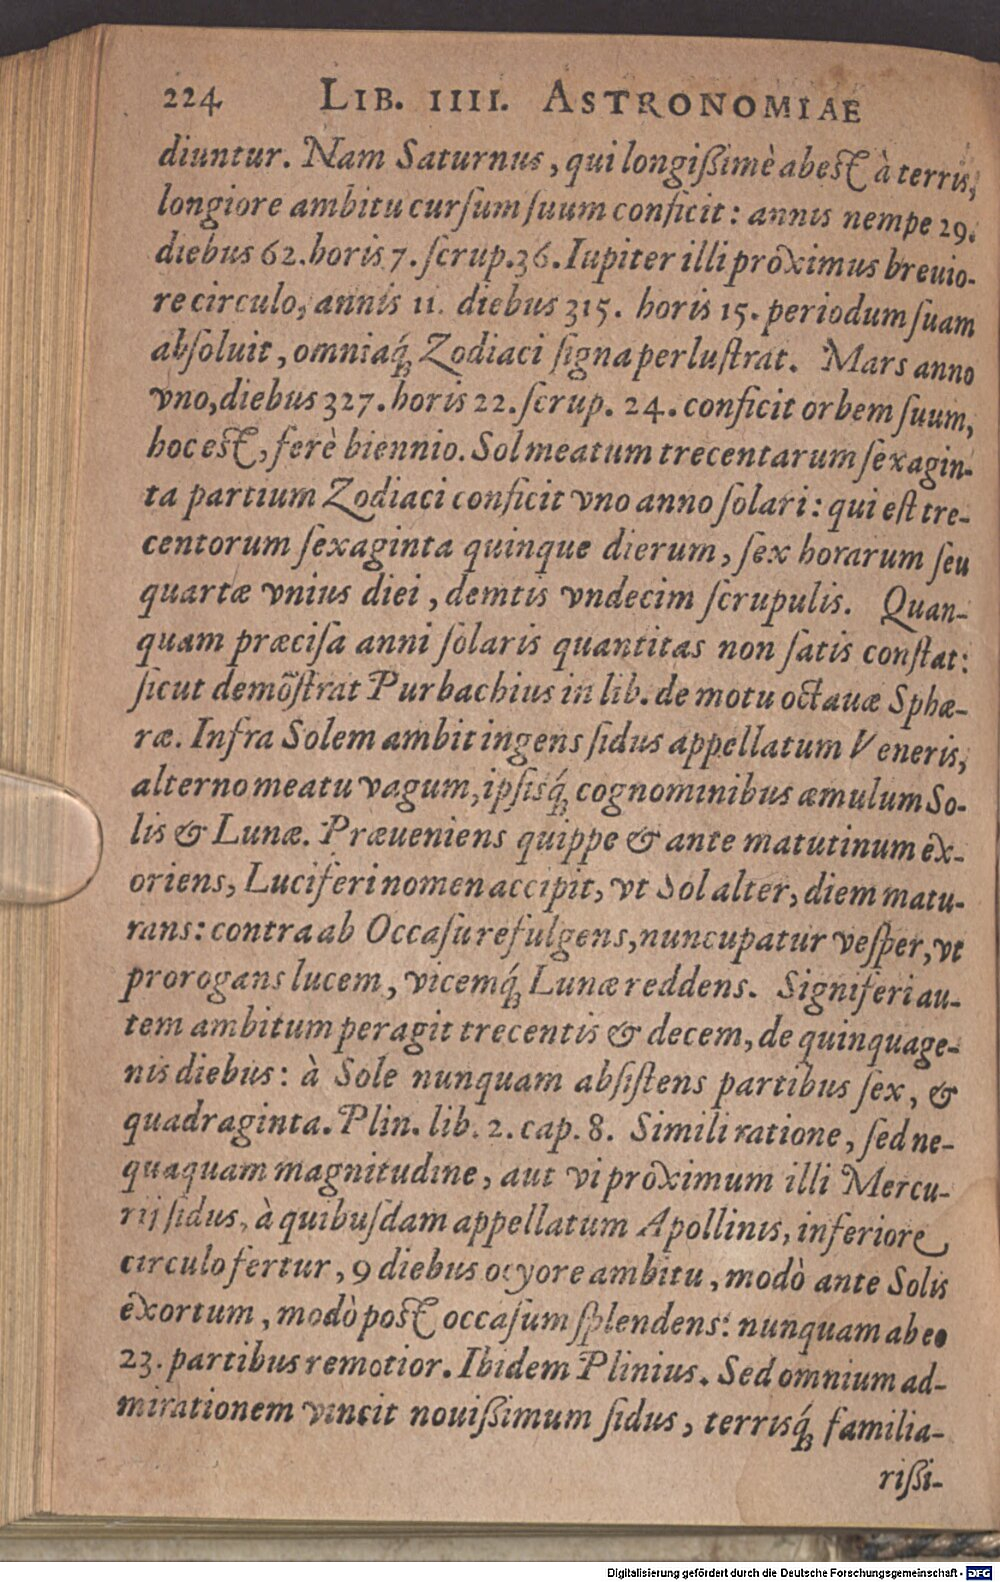 224 LIB. IIII. ASTRONOMIAE
diuntur. Nam Saturnus, qui longißimè abest à terris,
longiore ambitu cursum suum conficit: annis nempe 29.
diebus 62. horis 7. scrup. 36. Iupiter illi proximus breuio-
re circulo, annis 11. diebus 315. horis 15. periodum suam
absoluit, omniaq́; Zodiaci signa perlustrat. Mars anno
vno, diebus 327. horis 22. scrup. 24. conficit orbem suum,
hoc est, ferè biennio. Sol meatum trecentarum sexagin-
ta partium Zodiaci conficit vno anno solari: qui est tre-
centorum sexaginta quinque dierum, sex horarum seu
quartæ vnius diei, demtis vndecim scrupulis. Quan-
quam præcisa anni solaris quantitas non satis constat:
sicut demõstrat Purbachius in lib. de motu octauæ Sphæ-
ræ. Infra Solem ambit ingens sidus appellatum Veneris,
alterno meatu vagum, ipsisq́; cognominibus æmulum So-
lis & Lunæ. Præueniens quippe & ante matutinum ex-
oriens, Luciferi nomen accipit, vt Sol alter, diem matu-
rans: contra ab Occasu refulgens, nuncupatur vesper, vt
prorogans lucem, vicemq́; Lunæ reddens. Signiferi au-
tem ambitum peragit trecentis & decem, de quinquage-
nis diebus: à Sole nunquam absistens partibus sex, &
quadraginta. Plin. lib. 2. cap. 8. Simili ratione, sed ne-
quaquam magnitudine, aut vi proximum illi Mercu-
rij sidus, à quibusdam appellatum Apollinis, inferiore
circulo fertur, 9 diebus ocyore ambitu, modò ante Solis
exortum, modò post occasum splendens: nunquam ab eo
23. partibus remotior. Ibidem Plinius. Sed omnium ad-
mirationem vincit nouißimum sidus, terrisq́; familia-
rißi-
Digitalisierung gefördert durch die Deutsche Forschungsgemeinschaft - DFG